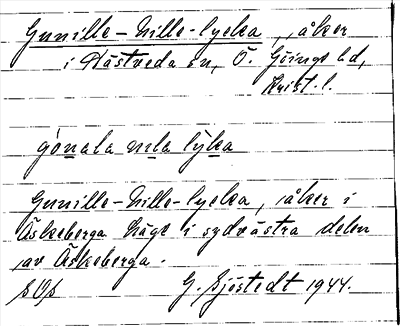 Gunille-Nille-lycka, åker
i Hästveda sn, Ö. Göinge hd,
Krist. l.
gónala nıla lỳka
Gunille-Nille-lycka, åker i
Äskeberga hage i sydvästra delen
av Äskeberga.
G. Sjöstedt 1944.